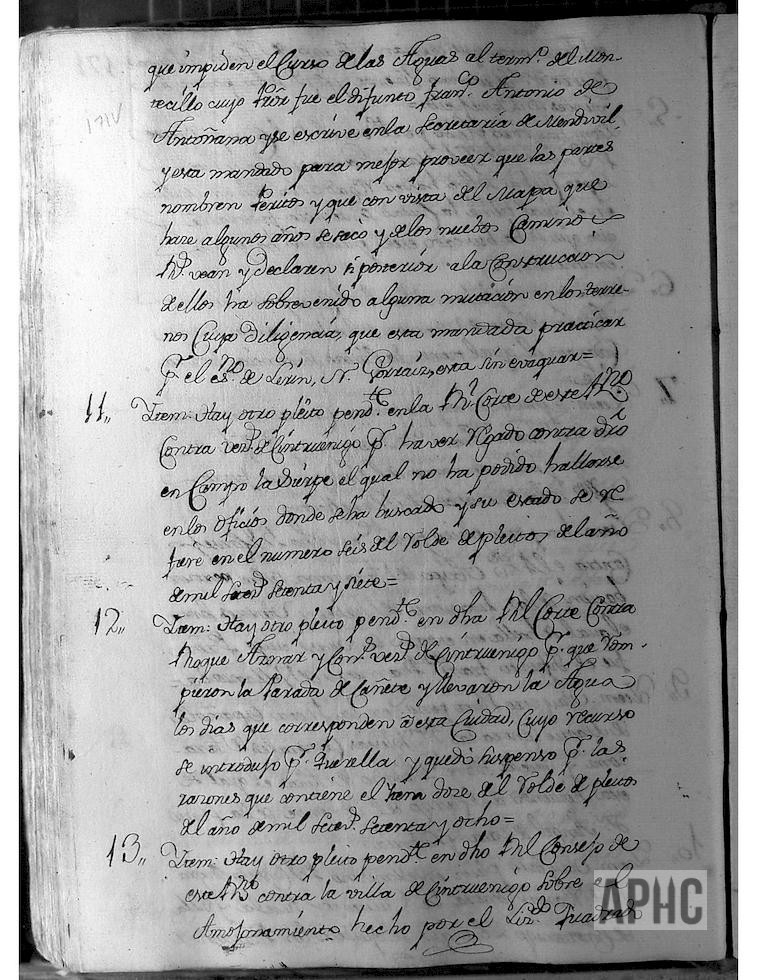 que impiden el Curso de las Aguas al term.º del Mon-
tecillo cuyo Prôr fue el difunto fran.co Antonio de
Antoñana y se escrive en la Secretaria de Mendivil,
y esta mandado para mejor proveer que las partes
nombren Peritos y que con vista del Mapa que
hace algunos años se sacó y de los nuebos Caminos
R.s vean y declaren si posterior a la Construccion
de ellos ha sobrevenido alguna mutacion en los terre-
nos Cuya diligencia, que esta mandada practicar
P.r el es.no de Lerin, N. Gorraiz, esta sin evaquar=
11,, Ytem: Hay otro pleito pend.te en la R.l Corte de este R.no
Contra vez.s de Cintruenigo p.r haver Regado contra dro
en Campo la Sierpe el qual no ha podido hallarse
en los oficios donde se ha buscado y su estado se re
fiere en el numero seis del Rolde de pleitos del año
de mil Setez.s Setenta y siete=
12,, Ytem: Hay otro pleito pend.te en dha Rl Corte Contra
Roque Aznar y Con.s vez.s de Cintruenigo p.r que Rom-
pieron la Parada de Cañete y llevaron la Agua
los dias que corresponden a esta Ciudad, Cuyo recurso
se introdujo p.r Querella y quedó suspenso p.r las
razones que contiene el Item doze del Rolde de pleitos
del año de mil Setez.s Setenta y ocho=
13,, Ytem: Hay otro pleito pend.te en dho Rl Consejo de
este R.no contra la villa de Cintruenigo sobre el
Amojonamiento hecho por el Liz.do Quadrado
APHC